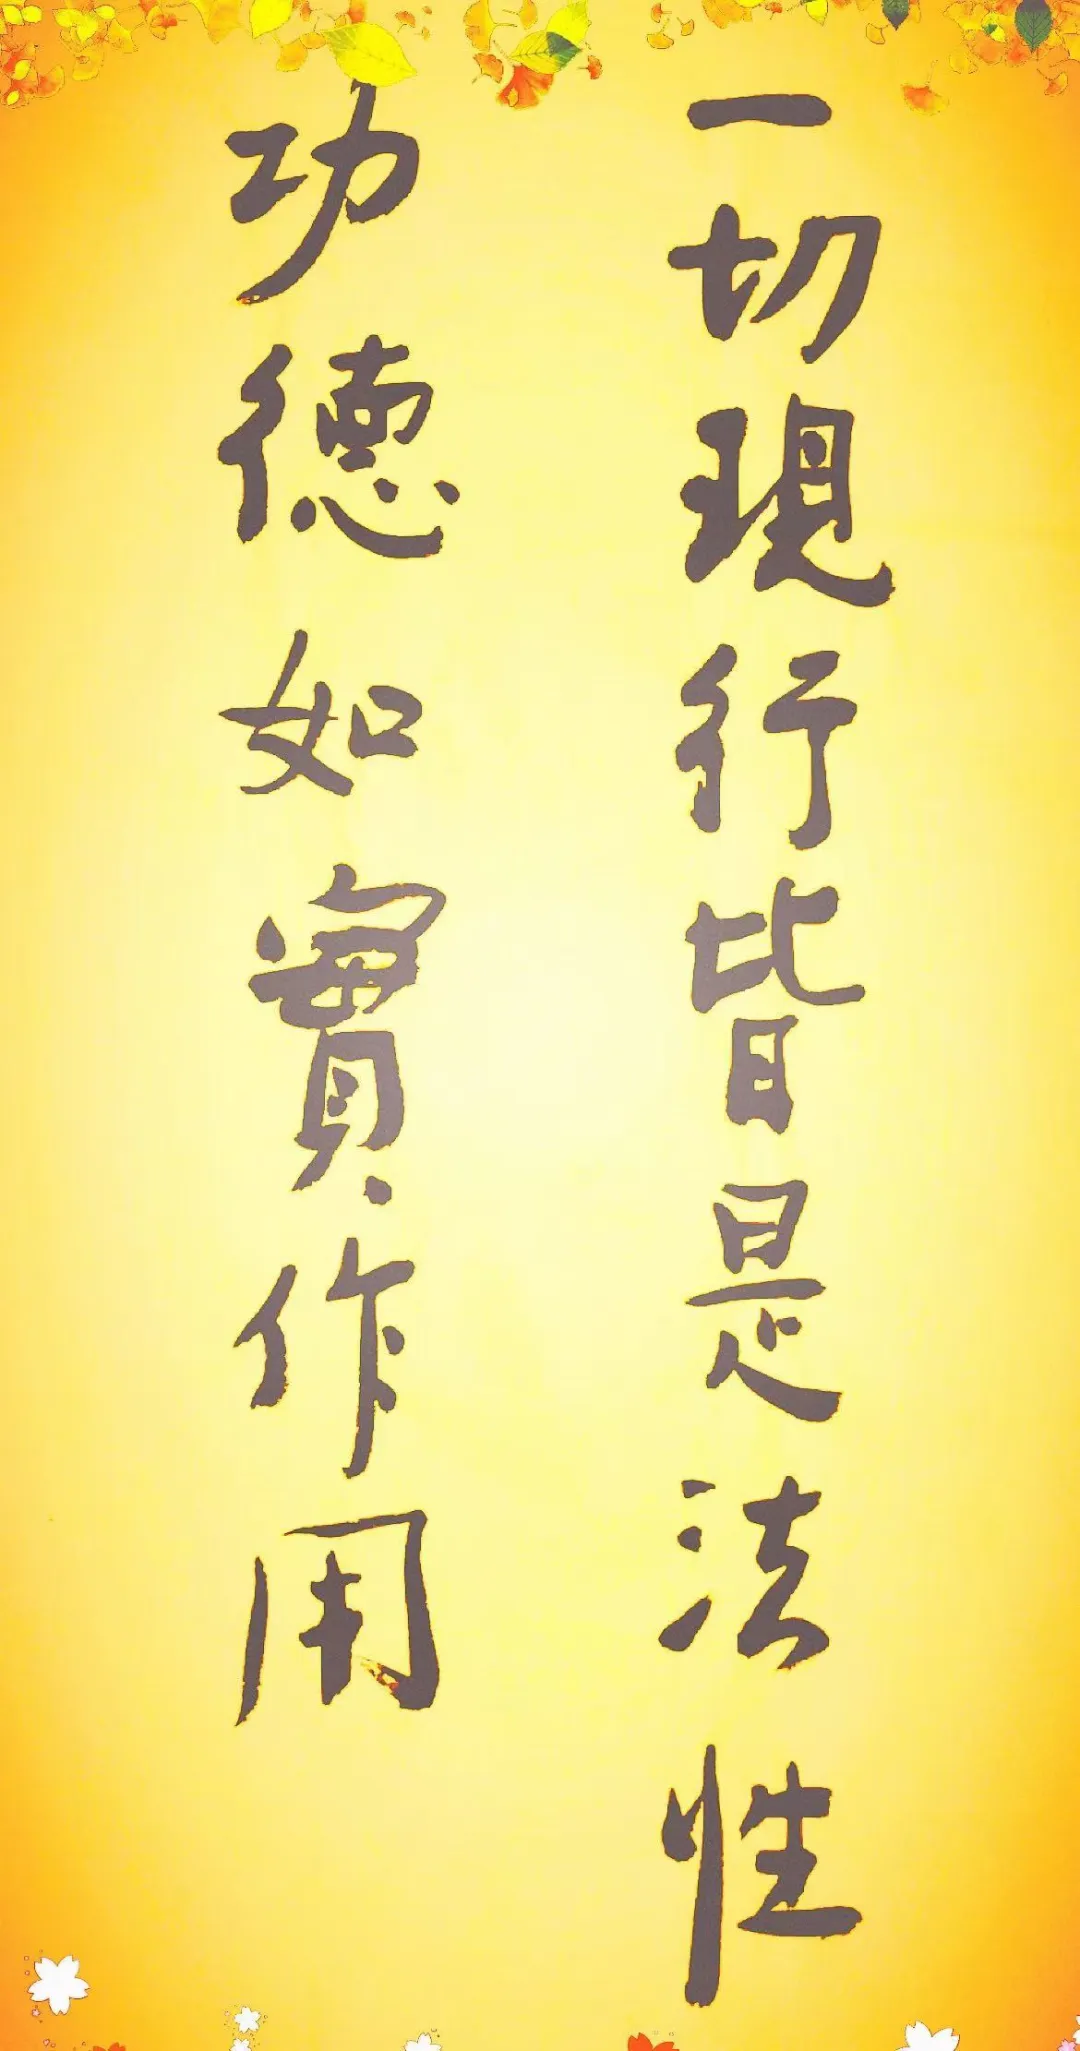 一切現行皆是法性
功德如實作用